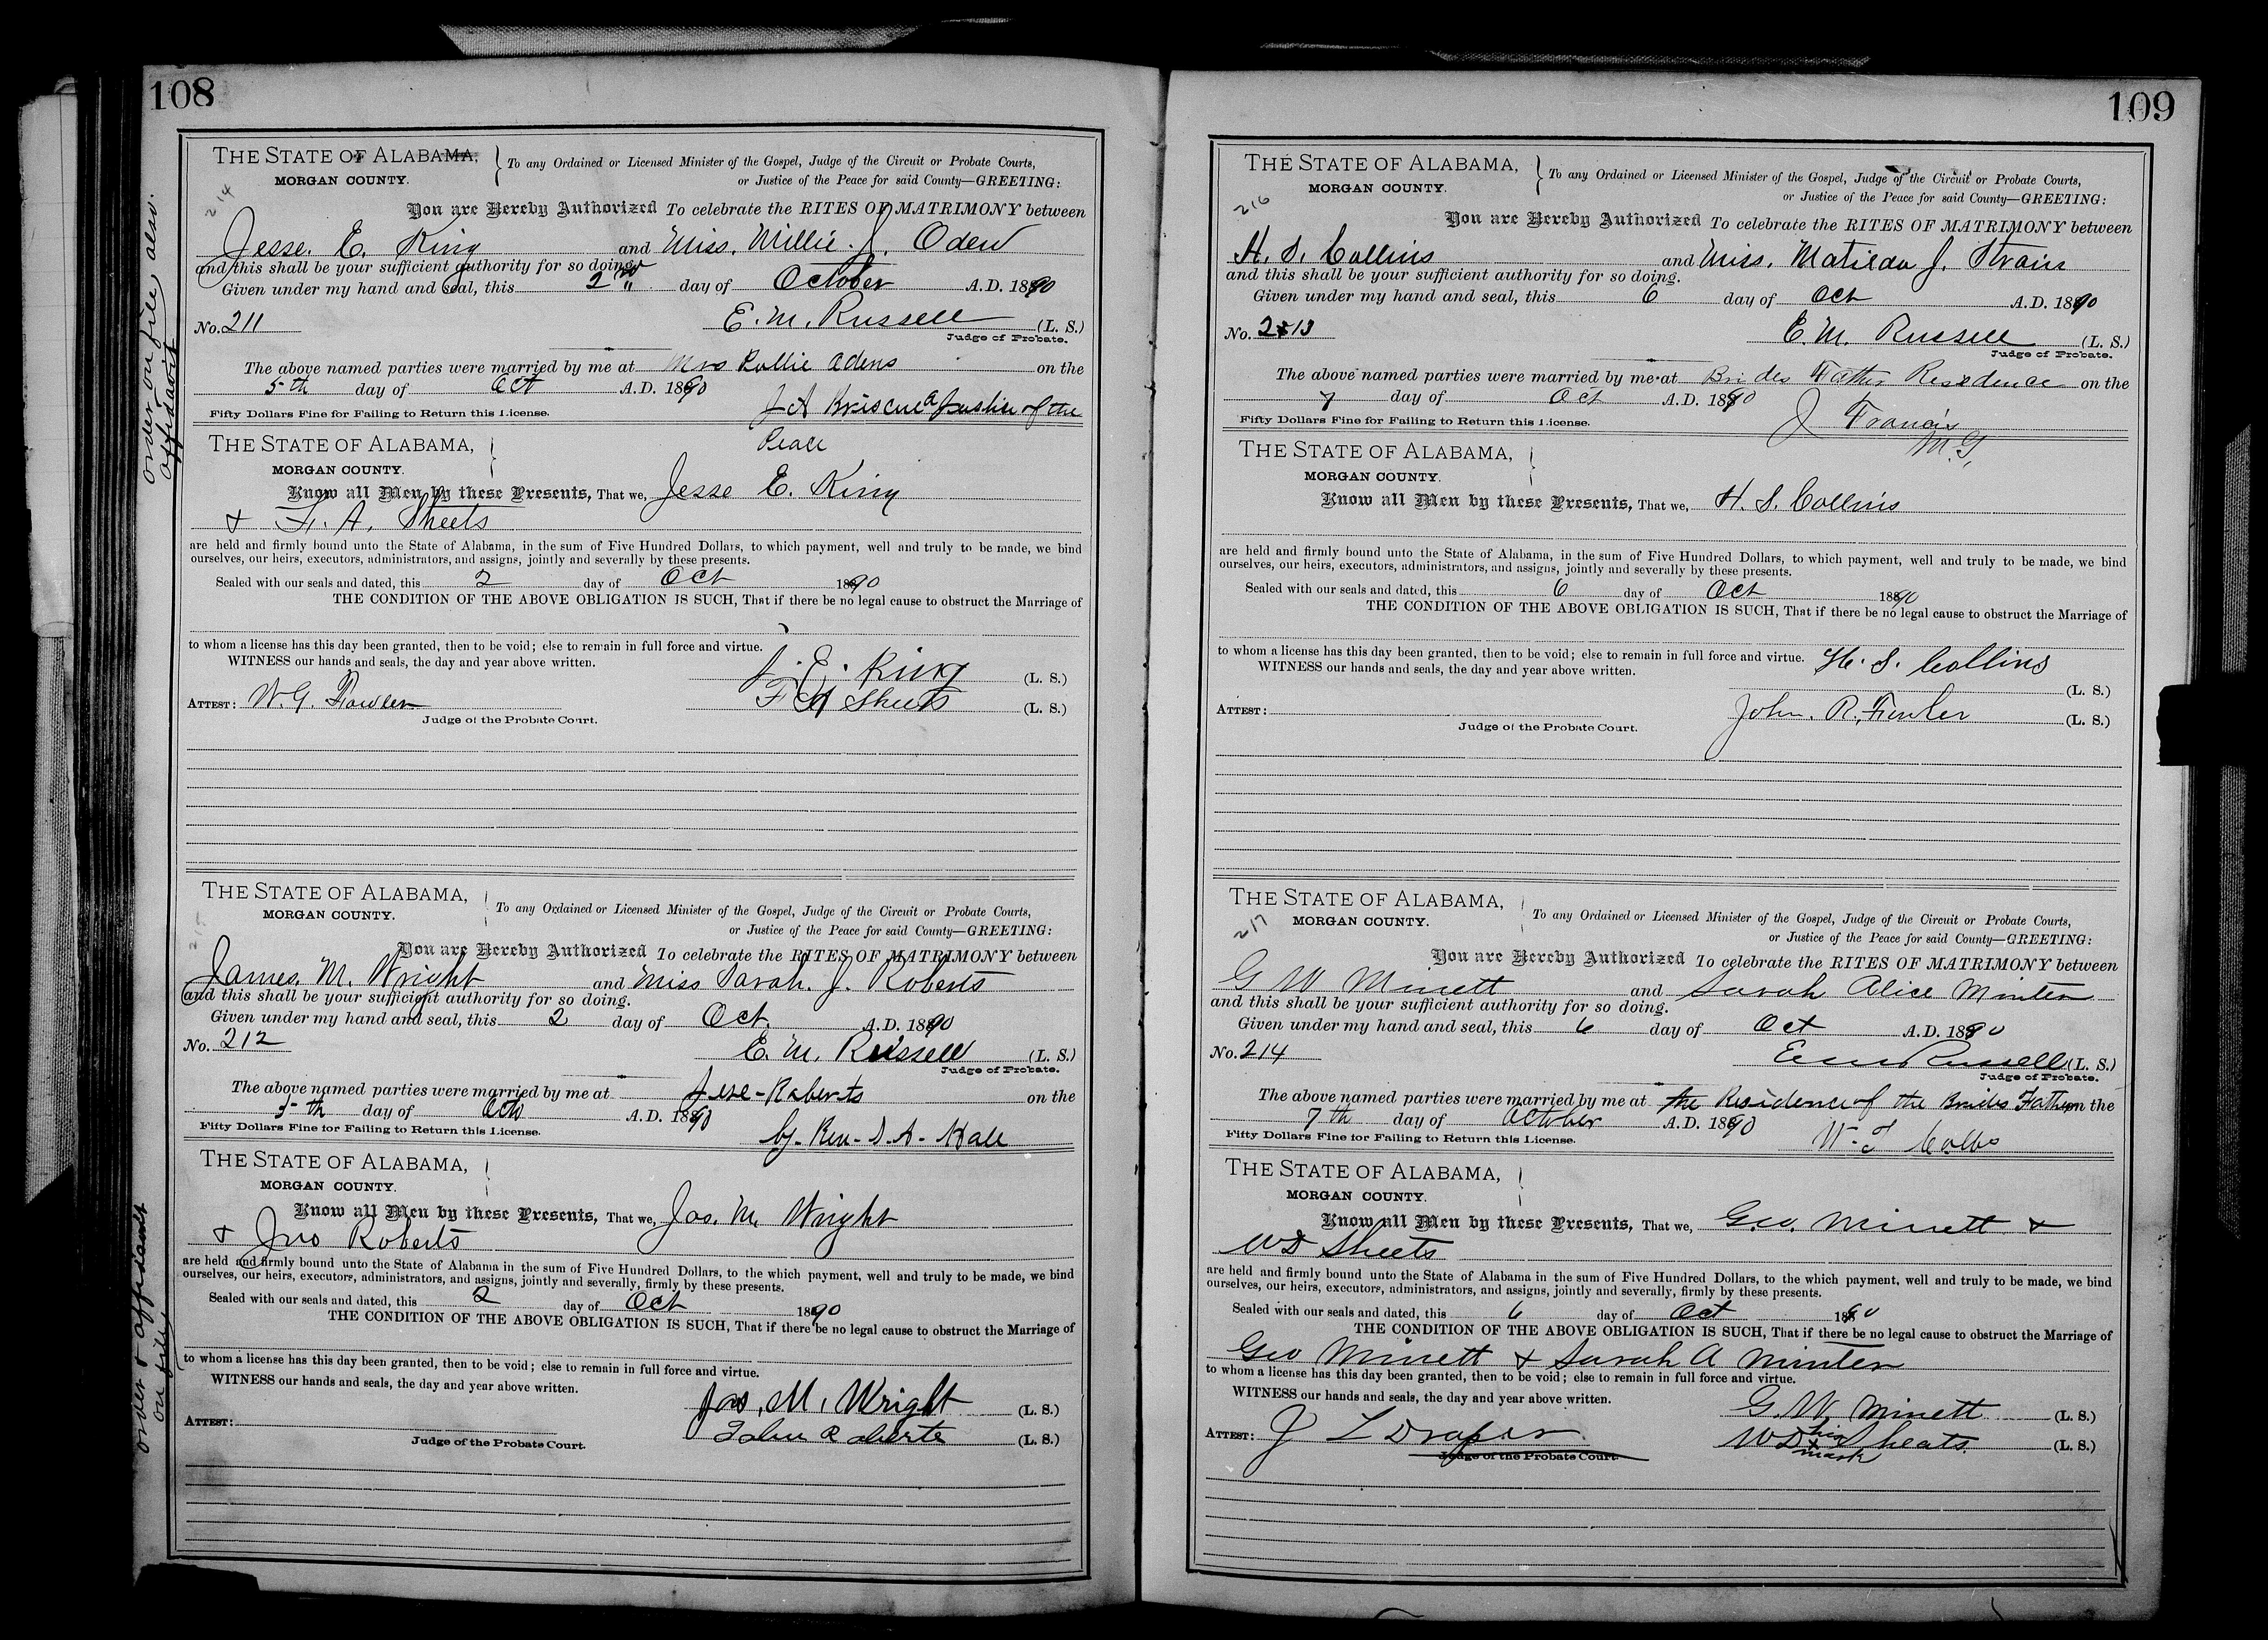 108
order on file also.
affidavit
THE STATE OF ALABAMA,
MORGAN COUNTY.
To any Ordained or Licensed Minister of the Gospel, Judge of the Circuit or Probate Courts,
or Justice of the Peace for said County—GREETING:
214
You are Hereby Authorized To celebrate the RITES OF MATRIMONY between
Jesse. E. King and Miss. Millie. J. Oden
and this shall be your sufficient authority for so doing.
Given under my hand and seal, this 2nd day of October A.D. 1890
No. 211 E. M. Russell (L. S.)
Judge of Probate.
The above named parties were married by me at Mrs Rollie Odens on the
5th day of Oct A.D. 1890
Fifty Dollars Fine for Failing to Return this License. J A a Justice of the
Peace
THE STATE OF ALABAMA,
MORGAN COUNTY.
Know all Men by these Presents, That we, Jesse E. King
& F. A. Sheets
are held and firmly bound unto the State of Alabama, in the sum of Five Hundred Dollars, to which payment, well and truly to be made, we bind
ourselves, our heirs, executors, administrators, and assigns, jointly and severally by these presents.
Sealed with our seals and dated, this 2 day of Oct 1890
THE CONDITION OF THE ABOVE OBLIGATION IS SUCH, That if there be no legal cause to obstruct the Marriage of
to whom a license has this day been granted, then to be void; else to remain in full force and virtue.
WITNESS our hands and seals, the day and year above written.
J. E. King (L. S.)
F A Sheets (L. S.)
ATTEST: W. G. Fowler
Judge of the Probate Court.
THE STATE OF ALABAMA,
MORGAN COUNTY.
To any Ordained or Licensed Minister of the Gospel, Judge of the Circuit or Probate Courts,
or Justice of the Peace for said County—GREETING:
215
You are Hereby Authorized To celebrate the RITES OF MATRIMONY between
James. M. Wright and Miss Sarah. J. Roberts
and this shall be your sufficient authority for so doing.
Given under my hand and seal, this 2 day of Oct. A.D. 1890
No. 212 E. M. Russell (L. S.)
Judge of Probate.
The above named parties were married by me at Jese-Roberts on the
5-th day of Octo A.D. 1890
Fifty Dollars Fine for Failing to Return this License. by-Rev-S.A-Hall
THE STATE OF ALABAMA,
MORGAN COUNTY.
order & affidavit
on file
Know all Men by these Presents, That we, Jas. M. Wright
& Jno Roberts
are held and firmly bound unto the State of Alabama in the sum of Five Hundred Dollars, to the which payment, well and truly to be made, we bind
ourselves, our heirs, executors, administrators, and assigns, jointly and severally, firmly by these presents.
Sealed with our seals and dated, this 2 day of Oct 1890
THE CONDITION OF THE ABOVE OBLIGATION IS SUCH, That if there be no legal cause to obstruct the Marriage of
to whom a license has this day been granted, then to be void; else to remain in full force and virtue.
WITNESS our hands and seals, the day and year above written.
Jas. M. Wright (L. S.)
John Roberts (L. S.)
ATTEST:
Judge of the Probate Court.
109
THE STATE OF ALABAMA,
MORGAN COUNTY.
To any Ordained or Licensed Minister of the Gospel, Judge of the Circuit or Probate Courts,
or Justice of the Peace for said County—GREETING:
216
You are Hereby Authorized To celebrate the RITES OF MATRIMONY between
H. S. Collins and Miss. Matilda J. Strain
and this shall be your sufficient authority for so doing.
Given under my hand and seal, this 6 day of Oct A.D. 1890
No. 213 E. M. Russell (L. S.)
Judge of Probate.
The above named parties were married by me at Brides Father Residence on the
7 day of Oct A.D. 1890
Fifty Dollars Fine for Failing to Return this License. J Francis
M.G.
THE STATE OF ALABAMA,
MORGAN COUNTY.
Know all Men by these Presents, That we, H. S. Collins
are held and firmly bound unto the State of Alabama, in the sum of Five Hundred Dollars, to which payment, well and truly to be made, we bind
ourselves, our heirs, executors, administrators, and assigns, jointly and severally by these presents.
Sealed with our seals and dated, this 6 day of Oct 1890
THE CONDITION OF THE ABOVE OBLIGATION IS SUCH, That if there be no legal cause to obstruct the Marriage of
to whom a license has this day been granted, then to be void; else to remain in full force and virtue.
WITNESS our hands and seals, the day and year above written.
H. S. Collins (L. S.)
ATTEST: John. R. (L. S.)
Judge of the Probate Court.
THE STATE OF ALABAMA,
MORGAN COUNTY.
To any Ordained or Licensed Minister of the Gospel, Judge of the Circuit or Probate Courts,
or Justice of the Peace for said County—GREETING:
217
You are Hereby Authorized To celebrate the RITES OF MATRIMONY between
G W Minett and Sarah Alice Minter
and this shall be your sufficient authority for so doing.
Given under my hand and seal, this 6 day of Oct A.D. 1890
No. 214 E M Russell (L. S.)
Judge of Probate.
The above named parties were married by me at the Residence of the Brides Father on the
7th day of October A.D. 1890
Fifty Dollars Fine for Failing to Return this License. W. T Cobbs
THE STATE OF ALABAMA,
MORGAN COUNTY.
Know all Men by these Presents, That we, Geo. Minett &
WD Sheets
are held and firmly bound unto the State of Alabama in the sum of Five Hundred Dollars, to the which payment, well and truly to be made, we bind
ourselves, our heirs, executors, administrators, and assigns, jointly and severally, firmly by these presents.
Sealed with our seals and dated, this 6 day of Oct 1890
THE CONDITION OF THE ABOVE OBLIGATION IS SUCH, That if there be no legal cause to obstruct the Marriage of
Geo Minett & Sarah A Minter
to whom a license has this day been granted, then to be void; else to remain in full force and virtue.
WITNESS our hands and seals, the day and year above written.
G. W. Minett (L. S.)
ATTEST: J L Draper WD his x mark Sheats (L. S.)
Judge of the Probate Court.